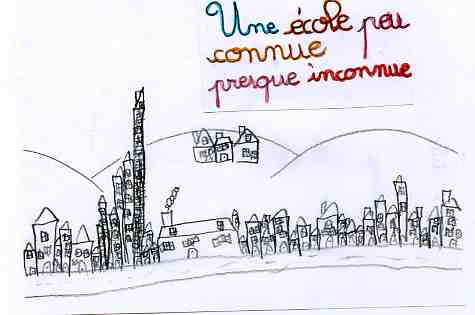 Une école peu
connue
presque inconnue